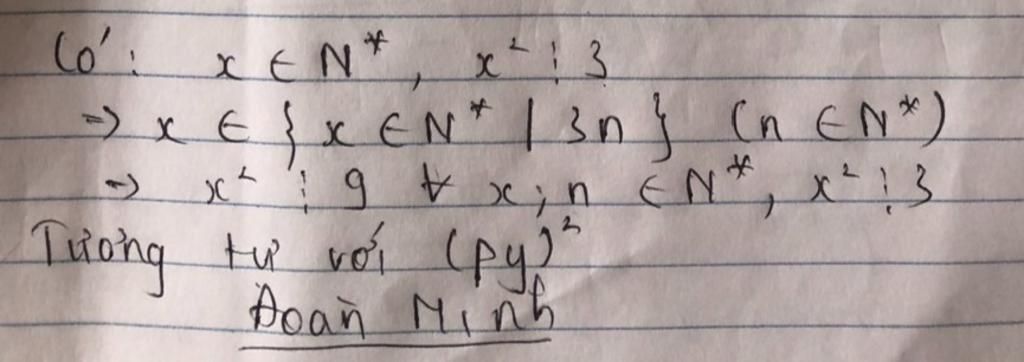 Có: x ∈ N*, x² ⋮ 3
→ x ∈ { x ∈ N* | 3n } (n ∈ N*)
→ x² ⋮ 9 ∀ x; n ∈ N*, x² ⋮ 3
Tương tự với (py)²
Đoàn Minh